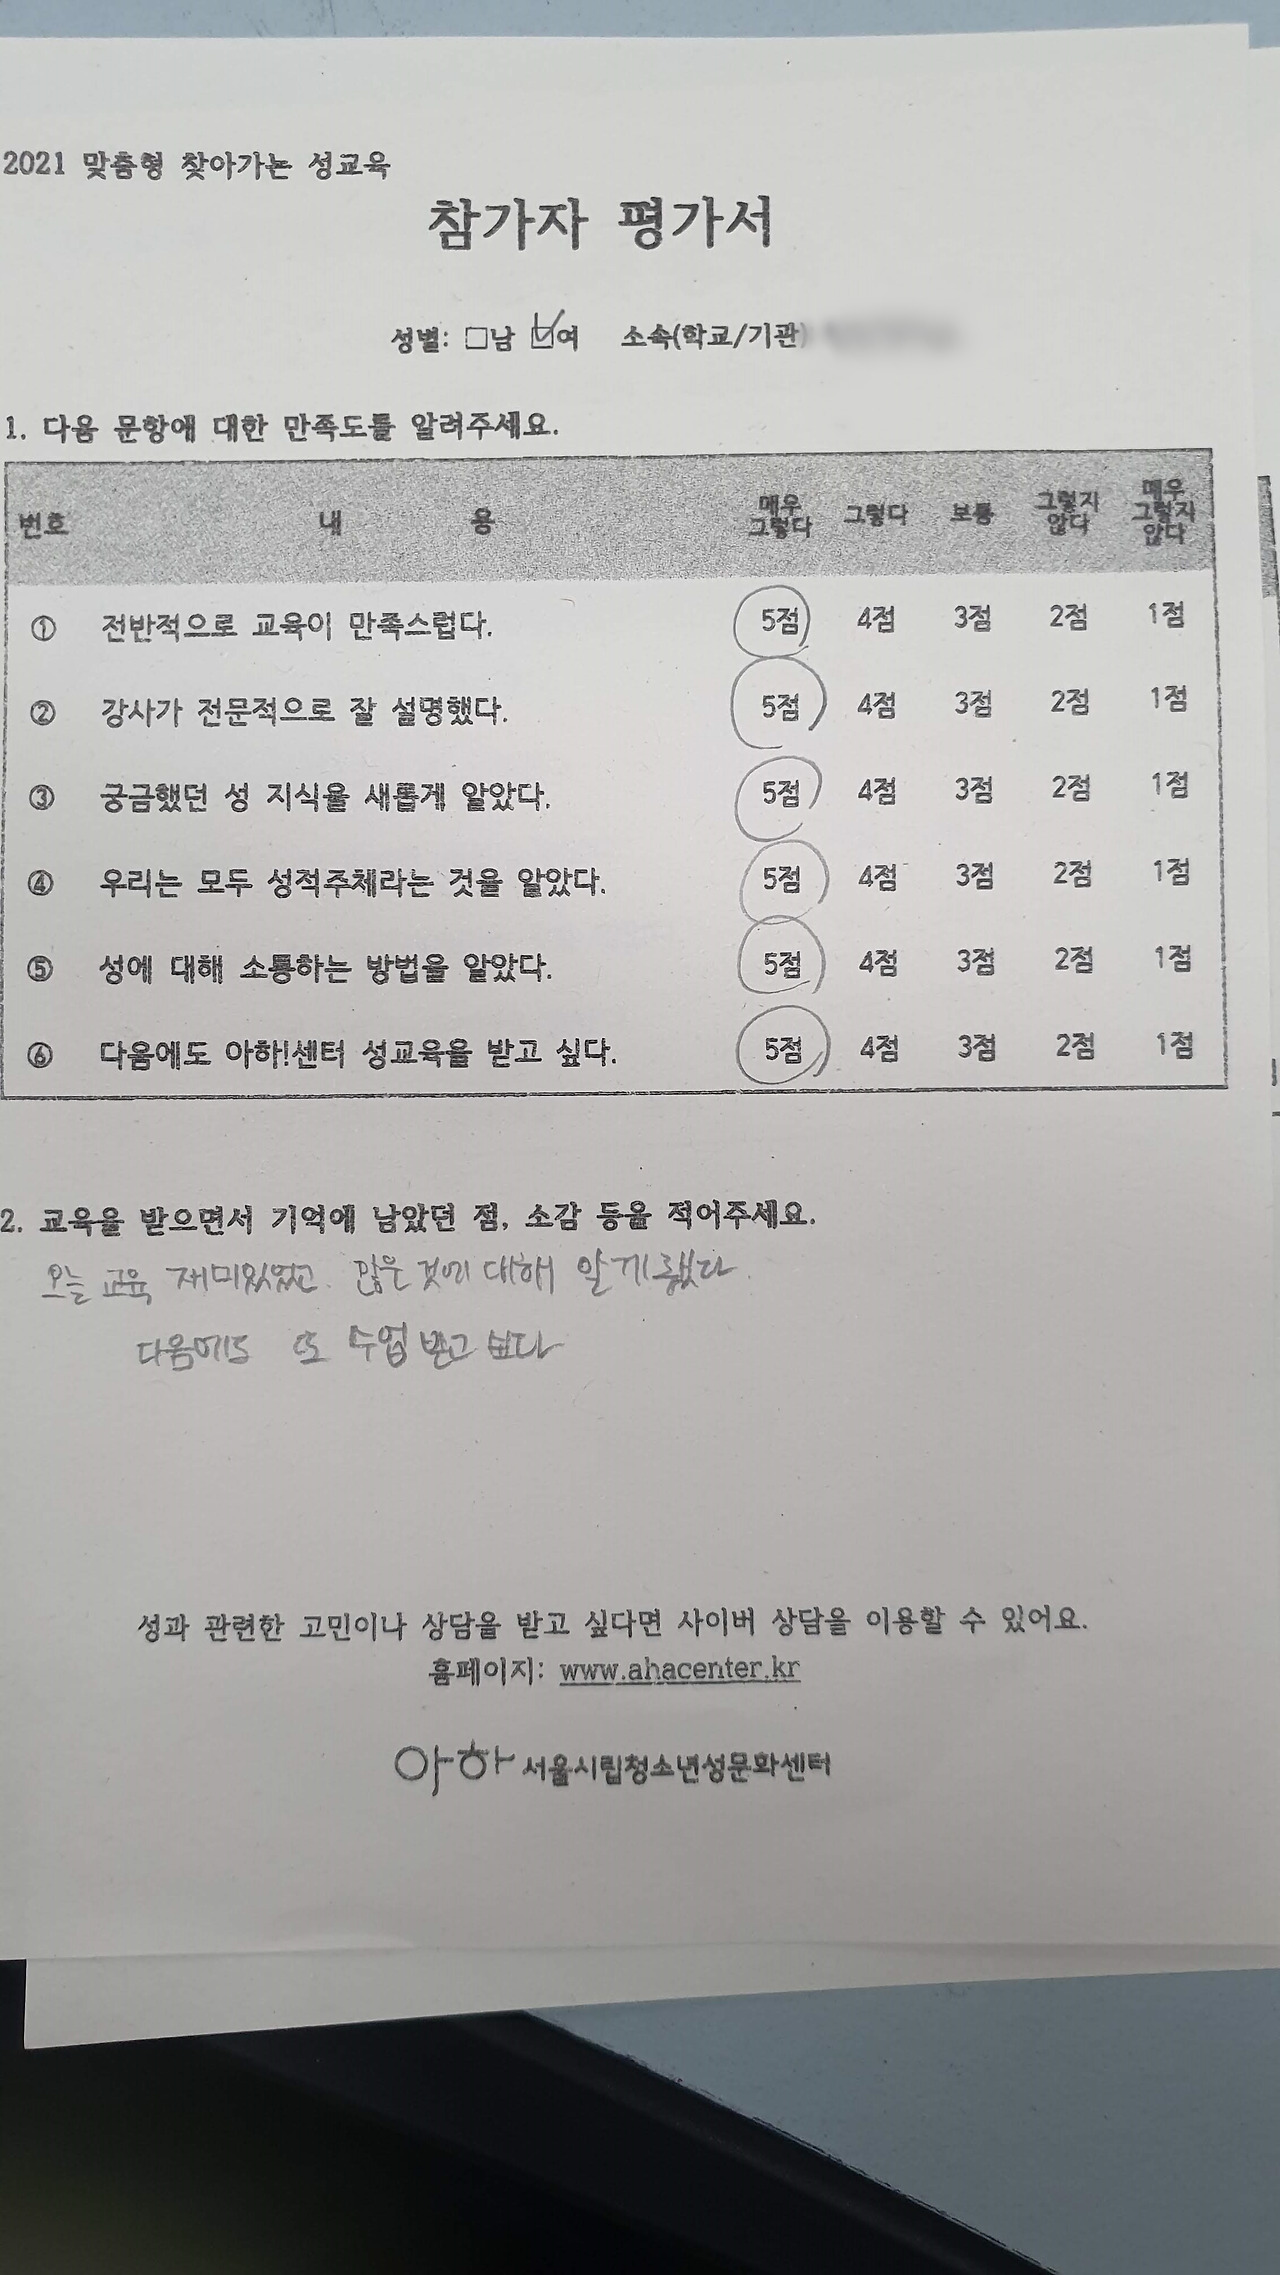 2021 맞춤형 찾아가는 성교육
참가자 평가서
성별: □남 ☑여 소속(학교/기관)
1. 다음 문항에 대한 만족도를 알려주세요.
번호 내 용 매우 그렇다 그렇다 보통 그렇지 않다 매우 그렇지 않다
① 전반적으로 교육이 만족스럽다. 5점 4점 3점 2점 1점
② 강사가 전문적으로 잘 설명했다. 5점 4점 3점 2점 1점
③ 궁금했던 성 지식을 새롭게 알았다. 5점 4점 3점 2점 1점
④ 우리는 모두 성적주체라는 것을 알았다. 5점 4점 3점 2점 1점
⑤ 성에 대해 소통하는 방법을 알았다. 5점 4점 3점 2점 1점
⑥ 다음에도 아하!센터 성교육을 받고 싶다. 5점 4점 3점 2점 1점
2. 교육을 받으면서 기억에 남았던 점, 소감 등을 적어주세요.
오늘 교육 재미있었고 많은 것에 대해 알게 됐다
다음에도 또 수업 받고 싶다
성과 관련한 고민이나 상담을 받고 싶다면 사이버 상담을 이용할 수 있어요.
홈페이지: www.ahacenter.kr
아하 서울시립청소년성문화센터